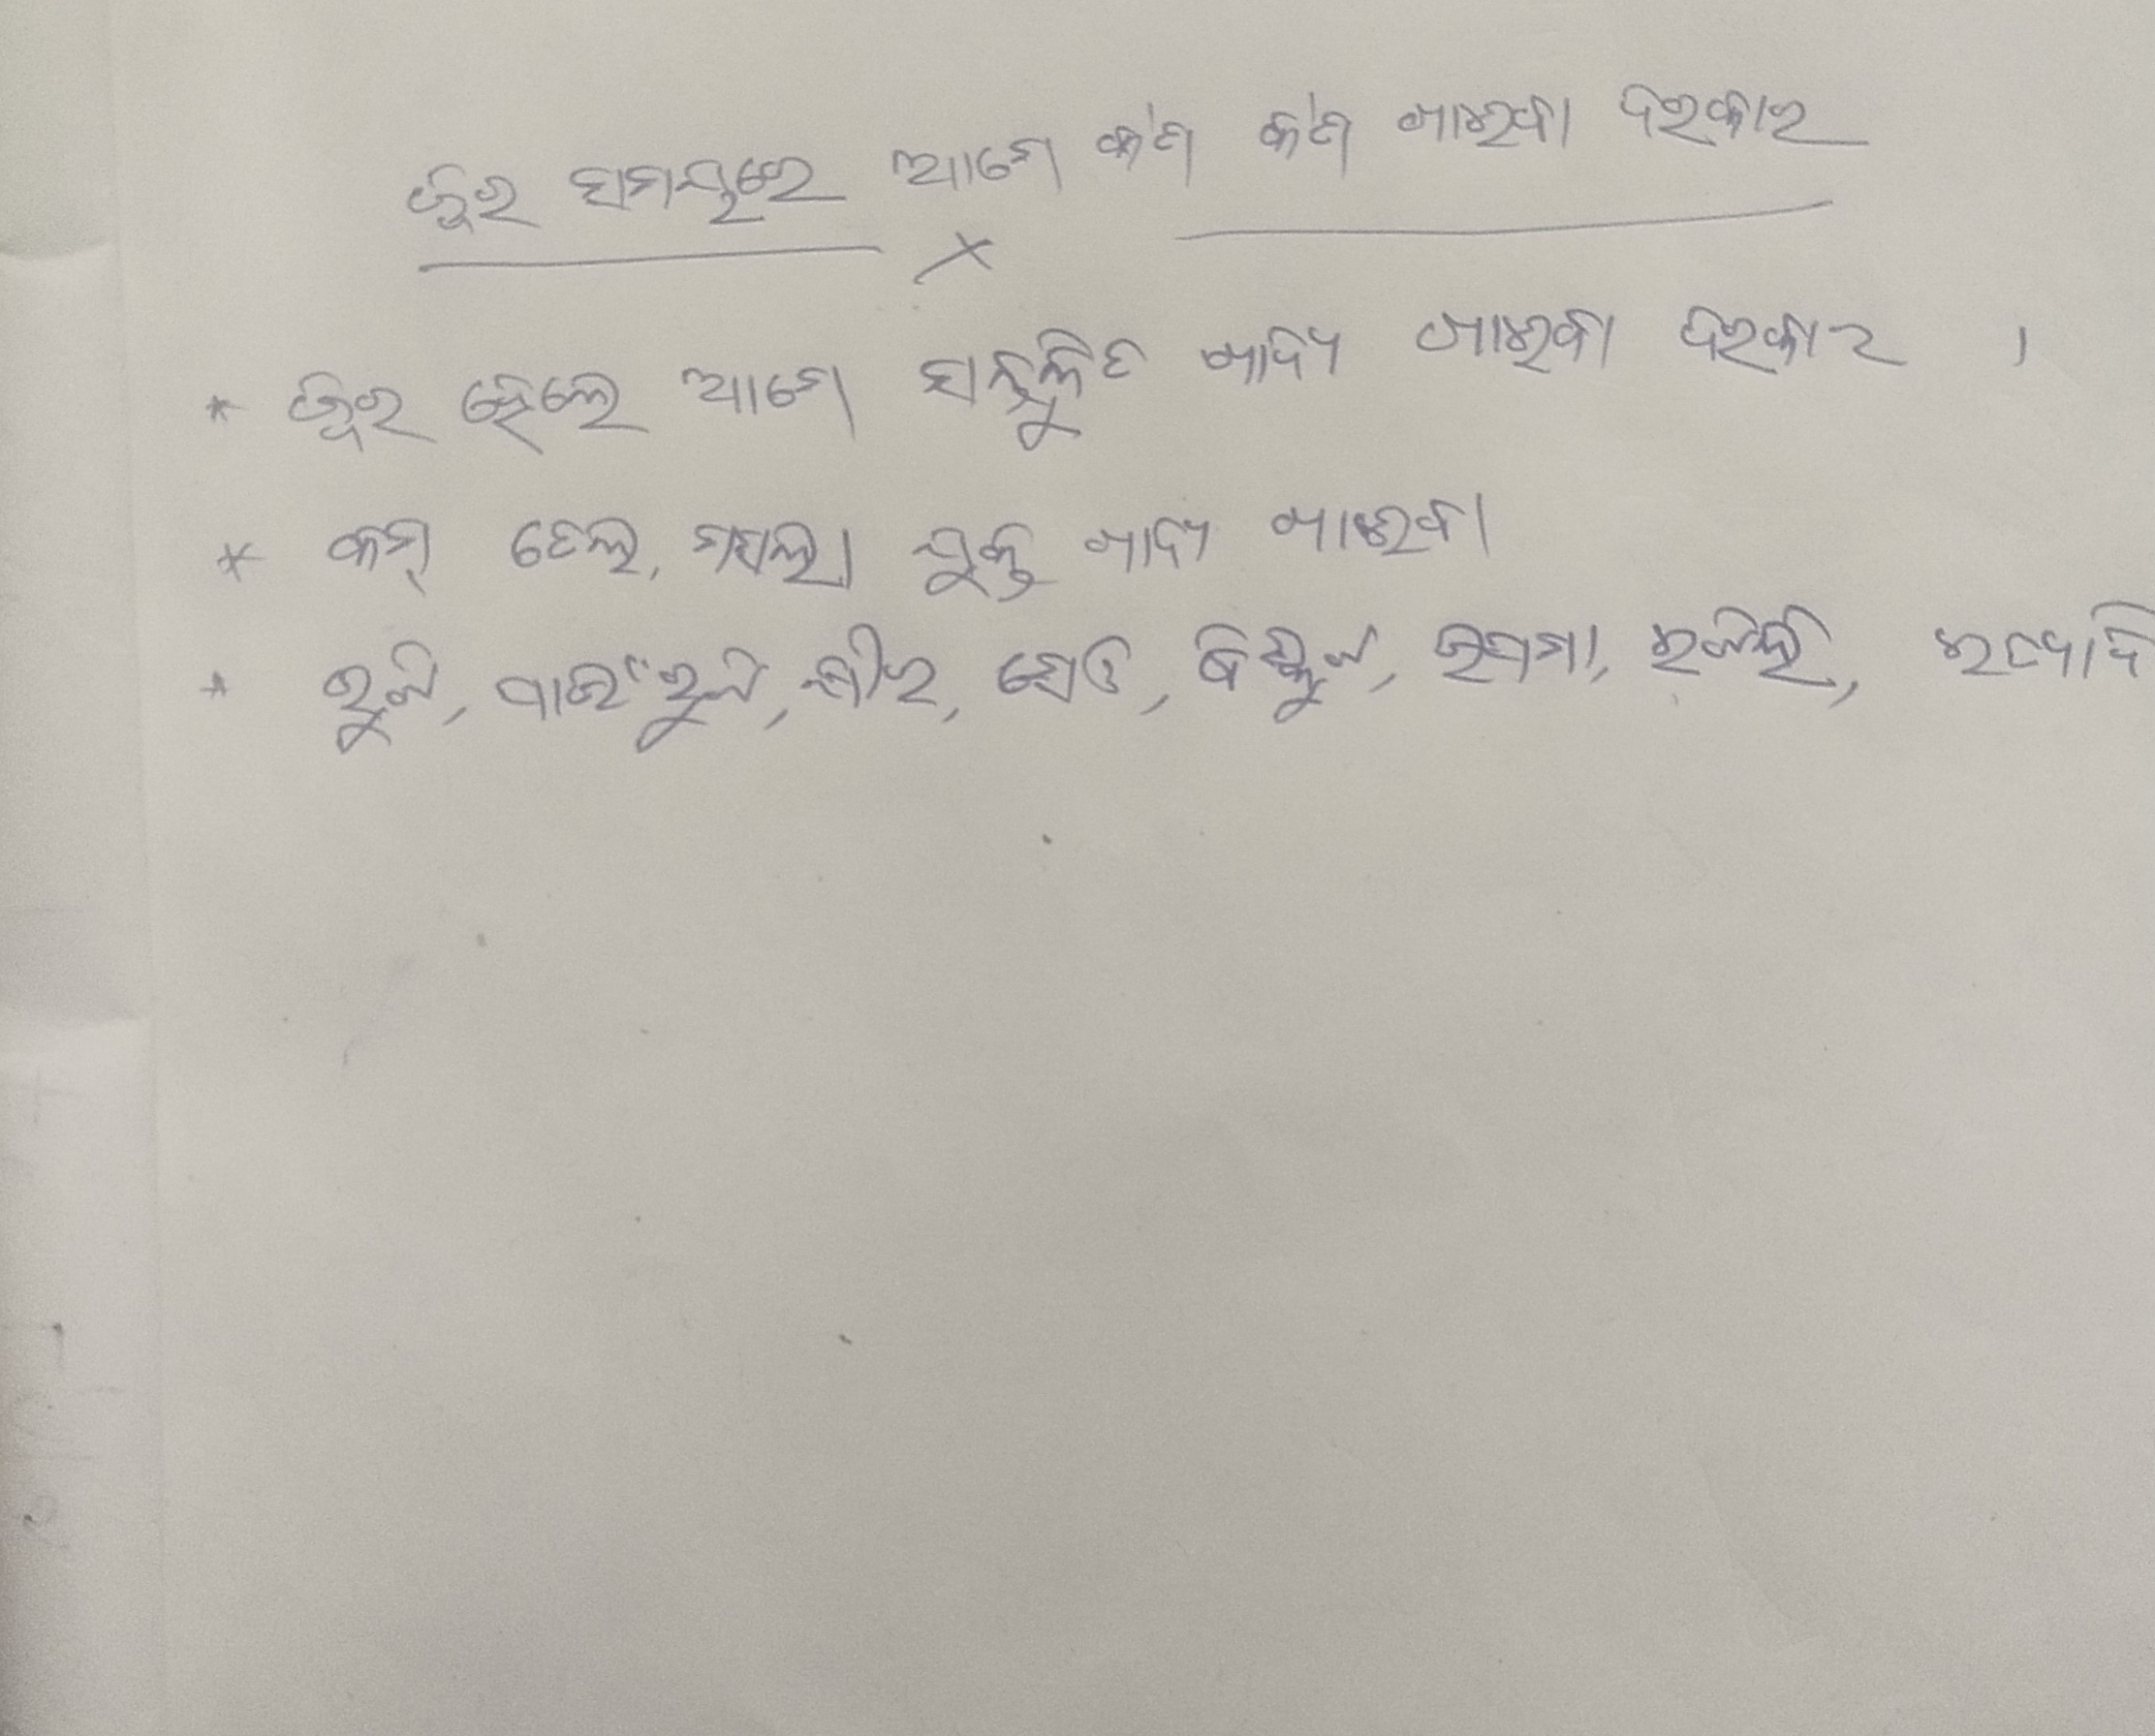 ଜ୍ୱର ସମୟରେ ଆମେ କ'ଣ କ'ଣ ଖାଇବା ଦରକାର
* ଜ୍ୱର ହେଲେ ଆମେ ସନ୍ତୁଳିତ ଖାଦ୍ୟ ଖାଇବା ଦରକାର ।
* କମ୍ ତେଲ, ମସଲା ଯୁକ୍ତ ଖାଦ୍ୟ ଖାଇବା
* ରୁଟି, ପାଉଁରୁଟି, କ୍ଷୀର, ସେଓ, ବିସ୍କୁଟ, ଉପମା, ଇଡଲି, ଇତ୍ୟାଦି